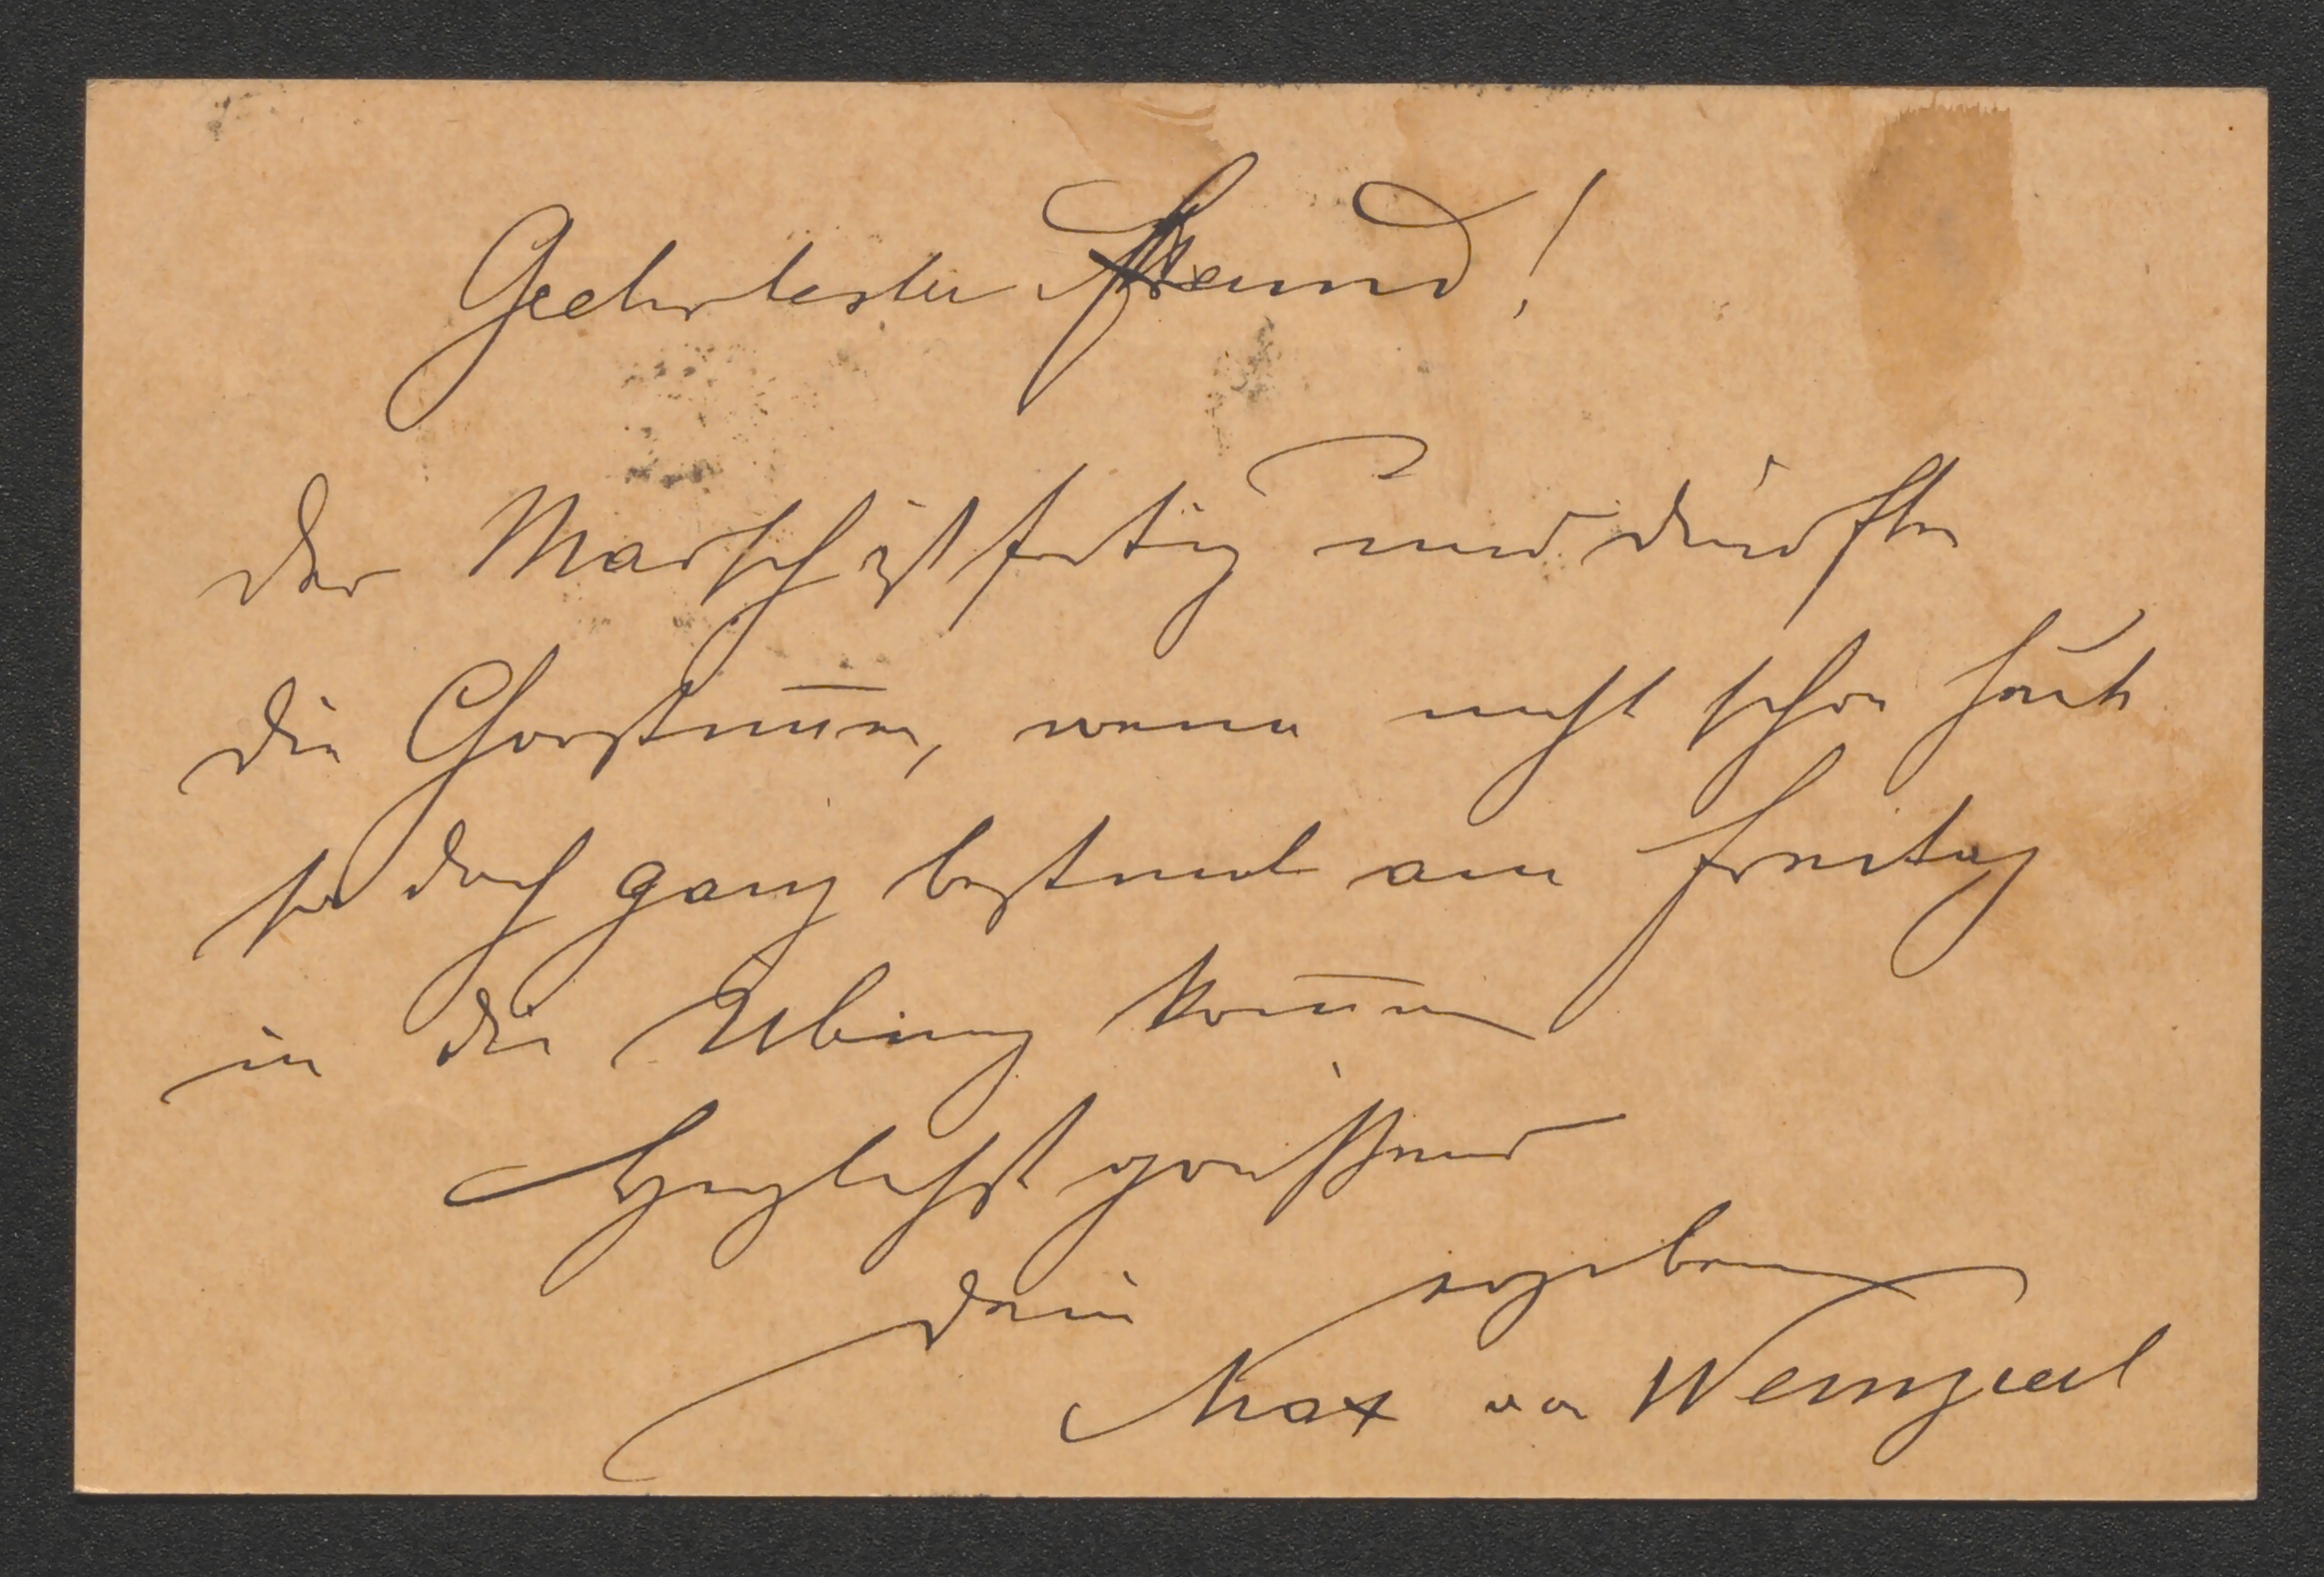 Geehrtester Freund!
Der Marsch ist fertig und dürften
die Chorstim̅en, wenn nicht schon heute
so doch ganz bestimt am Freitag
in die Übung kom̅en
Herzlichst grüßend
Dein ergebener
Max von Weinzierl